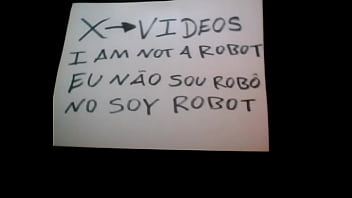 X→VIDEOS
I AM NOT A ROBOT
EU NÃO SOU ROBÔ
NO SOY ROBOT